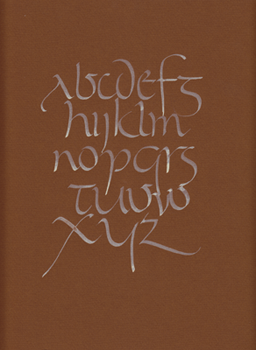 abcdefg
hijklm
nopqrs
tuvw
xyz